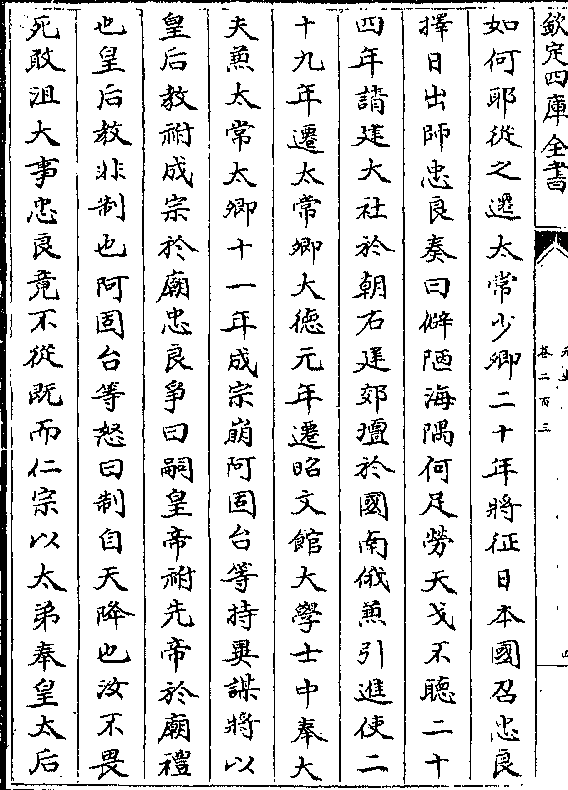 欽定四庫全書
元史
卷二百三
四
如何耶從之遷太常少卿二十年將征日本國召忠良
擇日出師忠良奏曰僻陋海隅何足勞天戈不聽二十
四年請建大社於朝右建郊壇於國南俄兼引進使二
十九年遷太常卿大德元年遷昭文館大學士中奉大
夫兼太常太卿十一年成宗崩阿固台等持異謀將以
皇后教祔成宗於廟忠良爭曰嗣皇帝祔先帝於廟禮
也皇后教非制也阿固台等怒曰制自天降也汝不畏
死敢沮大事忠良竟不從既而仁宗以太弟奉皇太后